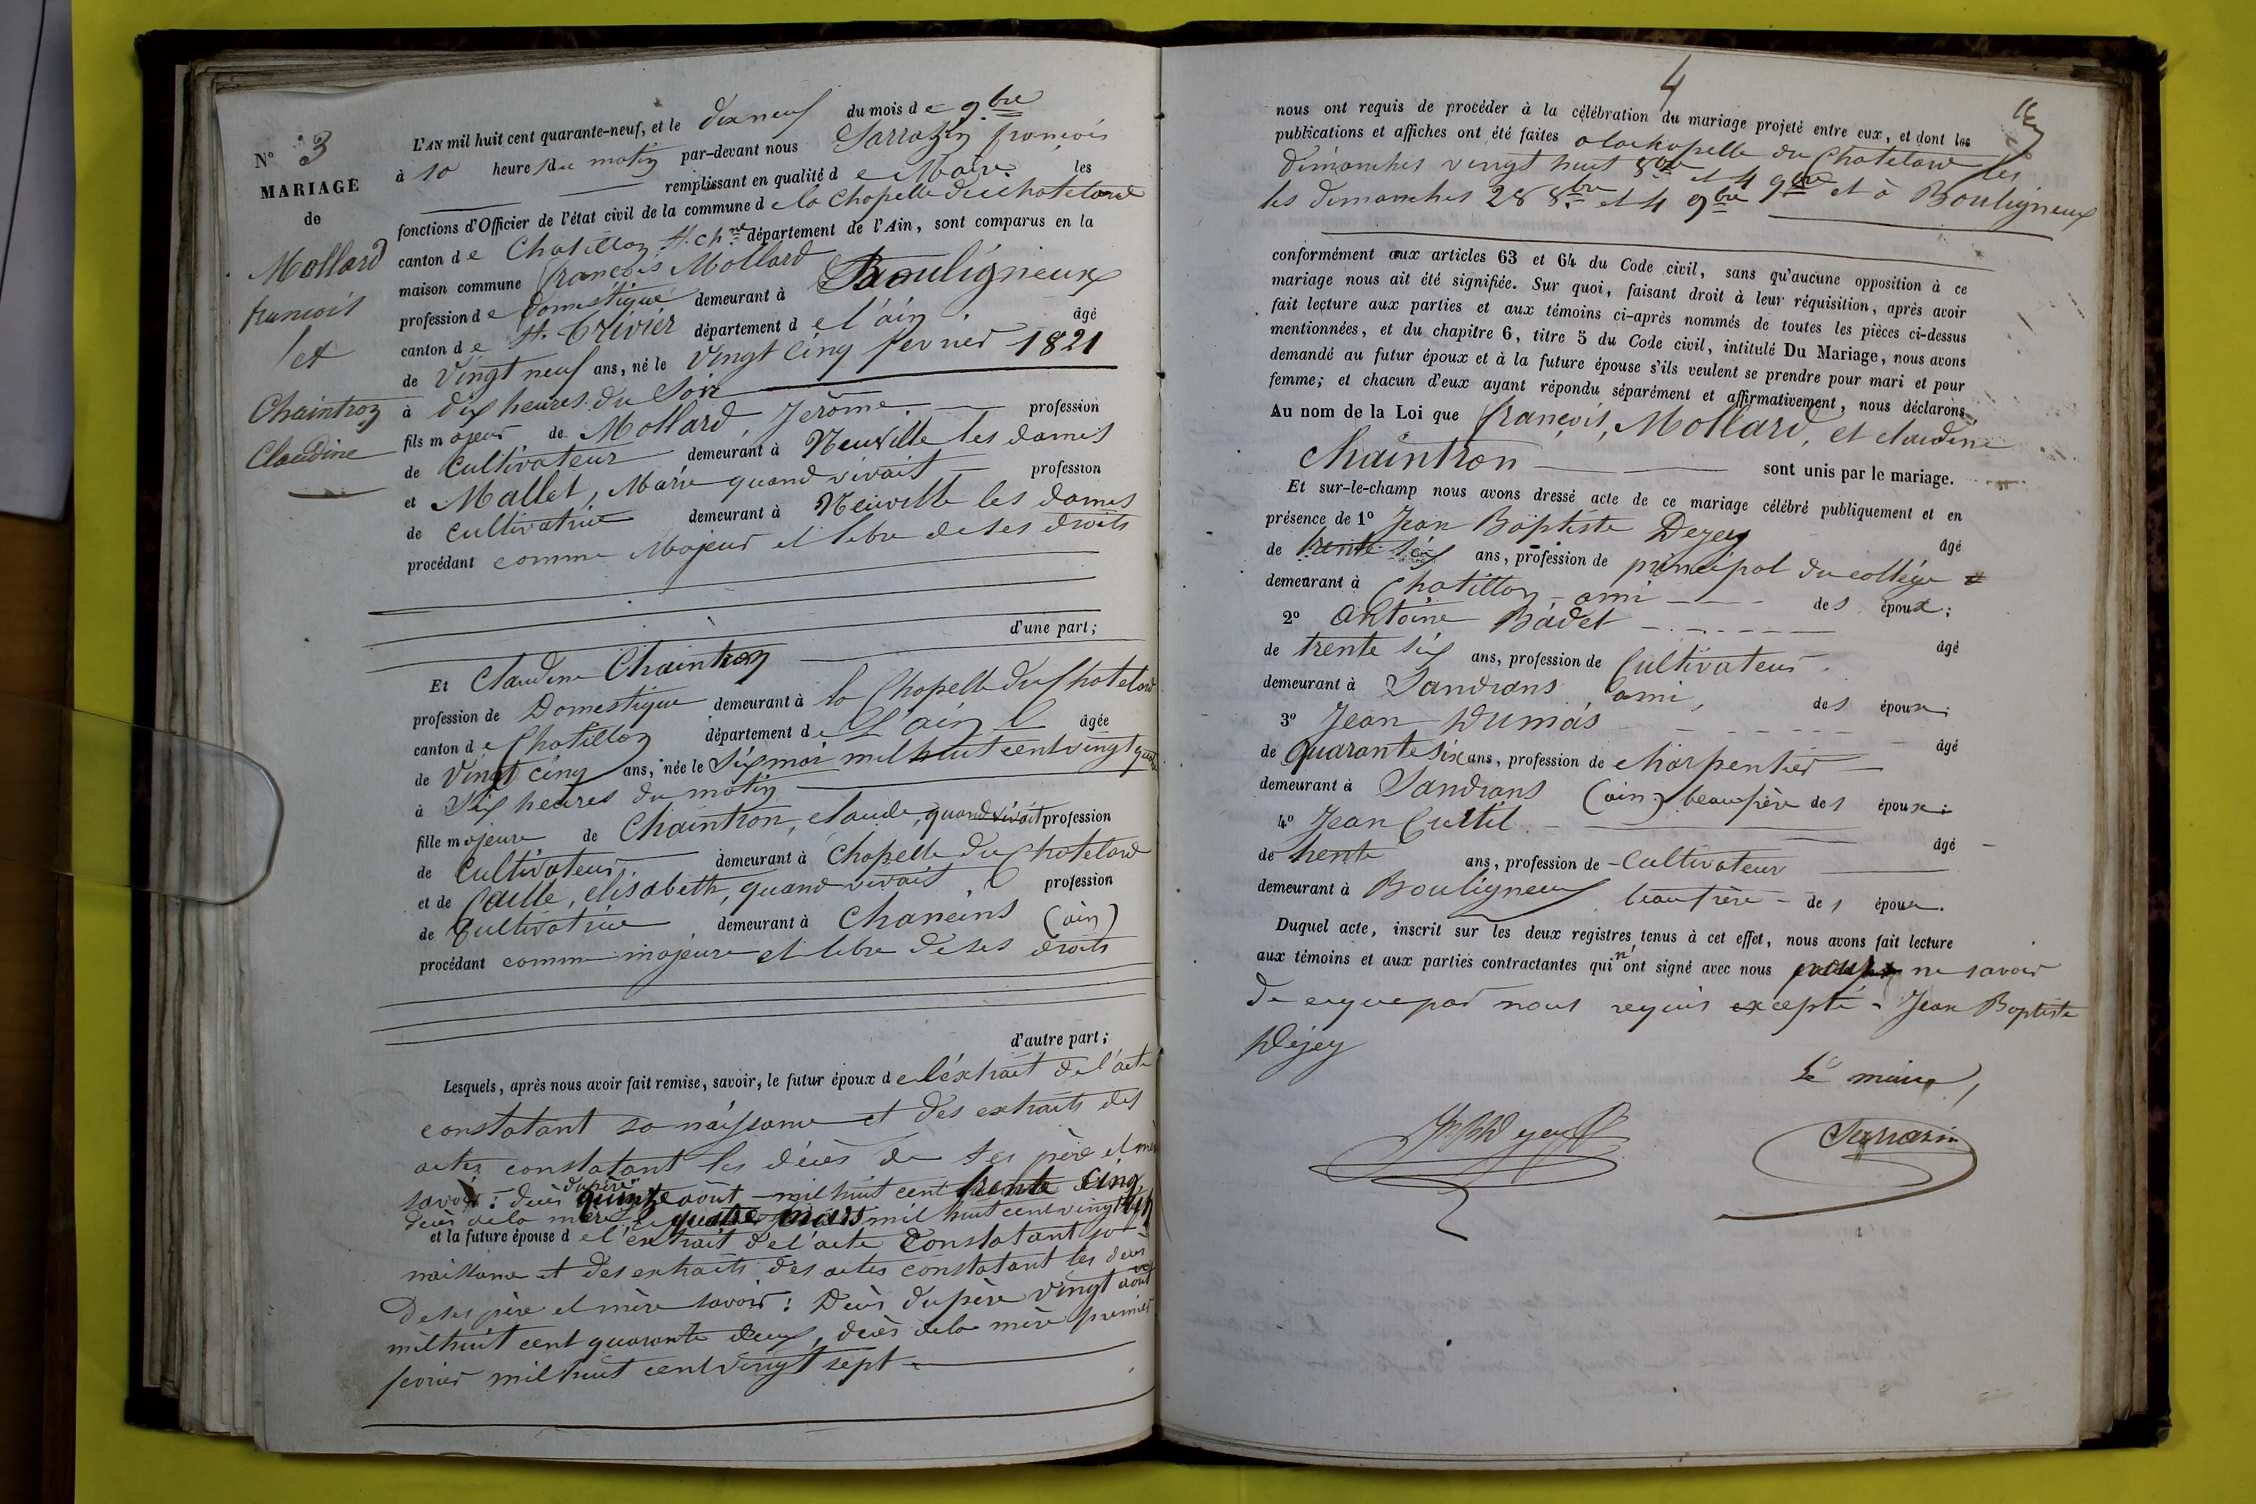 N° 3
MARIAGE
de
Mollard
francois
et
Chaintron
Claudine
L'AN mil huit cent quarante-neuf, et le dix neuf du mois de 9bre
à 10 heure du matin par-devant nous Sarrazin francois
remplissant en qualité de Maire les
fonctions d'Officier de l'état civil de la commune de la Chapelle du chatelard
canton de Chatillon s. ch.ne département de l'Ain, sont comparus en la
maison commune francois Mollard
profession de Domestique demeurant à Bouligneux
canton de St. Trivier département de l'ain. âgé
de Vingt neuf ans, né le Vingt cinq fevrier 1821
à dix heures du Soir
fils majeur de Mollard, Jerôme profession
de Cultivateur demeurant à Neuville les dames
et Mallet, Marie quand vivait profession
de cultivatrice demeurant à Neuville les dames
procédant comme Majeur et libre de ses droits
d'une part;
Et Claudine Chaintron
profession de Domestique demeurant à la Chapelle du Chatelard
canton de Chatillon département de l'ain âgée
de Vingt cinq ans, née le Six mai mil huit cent vingt quatre
à Six heures du matin
fille majeure de Chaintron, claude, quand vivait profession
de Cultivateur demeurant à Chapelle du Chatelard
et de Caille, elisabeth, quand vivait profession
de Cultivatrice demeurant à Chaneins (ain)
procédant comme majeure et libre de ses droits
d'autre part;
Lesquels, après nous avoir fait remise, savoir, le futur époux de l'éxtrait de l'acte
constatant sa naissance et des extraits des
actes constatant les décès de ses père et mère
savoir: décès du père quinze août mil huit cent trente cinq
décès de la mère le quatre mars mil huit cent vingt
et la future épouse de l'extrait de l'acte constatant sa
naissance et des extraits des actes constatant les décès
de ses père et mère savoir: Décès du père vingt août
mil huit cent quarante deux, décès de la mère premier
fevrier mil huit cent vingt sept
4
nous ont requis de procéder à la célébration du mariage projeté entre eux, et dont les
publications et affiches ont été faites a la chapelle du Chatelard les
dimanches vingt huit 8bre et 4 9bre et à Bouligneux
les dimanches 28 8bre et 4 9bre
conformément aux articles 63 et 64 du Code civil, sans qu'aucune opposition à ce
mariage nous ait été signifiée. Sur quoi, faisant droit à leur réquisition, après avoir
fait lecture aux parties et aux témoins ci-après nommés de toutes les pièces ci-dessus
mentionnées, et du chapitre 6, titre 5 du Code civil, intitulé Du Mariage, nous avons
demandé au futur époux et à la future épouse s'ils veulent se prendre pour mari et pour
femme; et chacun d'eux ayant répondu séparément et affirmativement, nous déclarons
Au nom de la Loi que françois, Mollard, et claudine
Chaintron sont unis par le mariage.
Et sur-le-champ nous avons dressé acte de ce mariage célébré publiquement et en
présence de 1° Jean Baptiste Dejey âgé
de trente six ans, profession de principal du collége
demeurant à Chatillon - ami des époux;
2° antoine Badet âgé
de trente six ans, profession de Cultivateur
demeurant à Sandrans ami, des époux;
3° Jean Dumas âgé
de quarante six ans, profession de charpentier
demeurant à Sandrans (ain) beaufrère des époux;
4° Jean Curtil âgé
de trente ans, profession de Cultivateur
demeurant à Bouligneux beaufrère des époux.
Duquel acte, inscrit sur les deux registres tenus à cet effet, nous avons fait lecture
aux témoins et aux parties contractantes qui n'ont signé avec nous pour ne savoir
de requis excepté Jean Baptiste
Dejey
Le maire,
Sarrasin